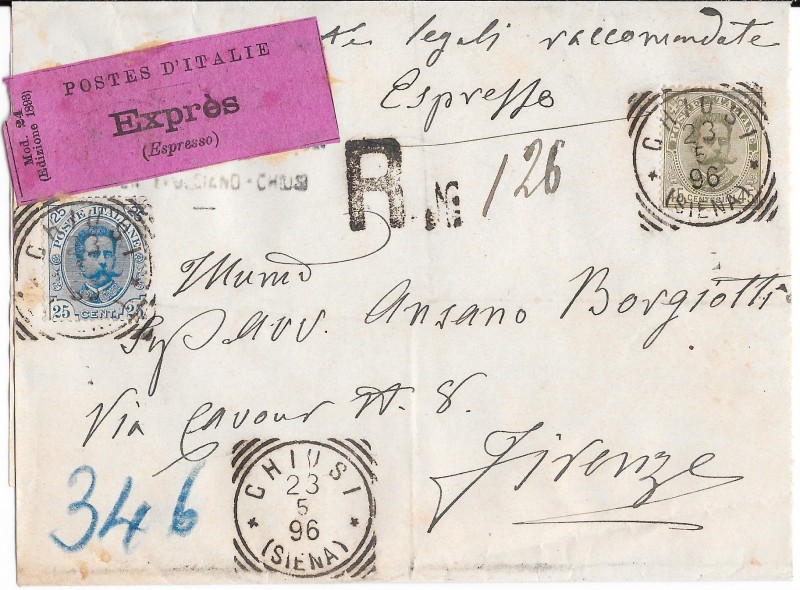 legali raccomandate
Espresso
POSTES D'ITALIE
Exprès
(Espresso)
Mod. 24
(Edizione 1893)
CHIUSI
23
5
96
(SIENA)
POSTE ITALIANE
R No 126
CHIUSI
25 25
POSTE ITALIANE
CHIUSI
25 CENT. 25
Avv. Ansano Borgiotti
Via Cavour N. 8.
Firenze
346
CHIUSI
23
5
96
(SIENA)